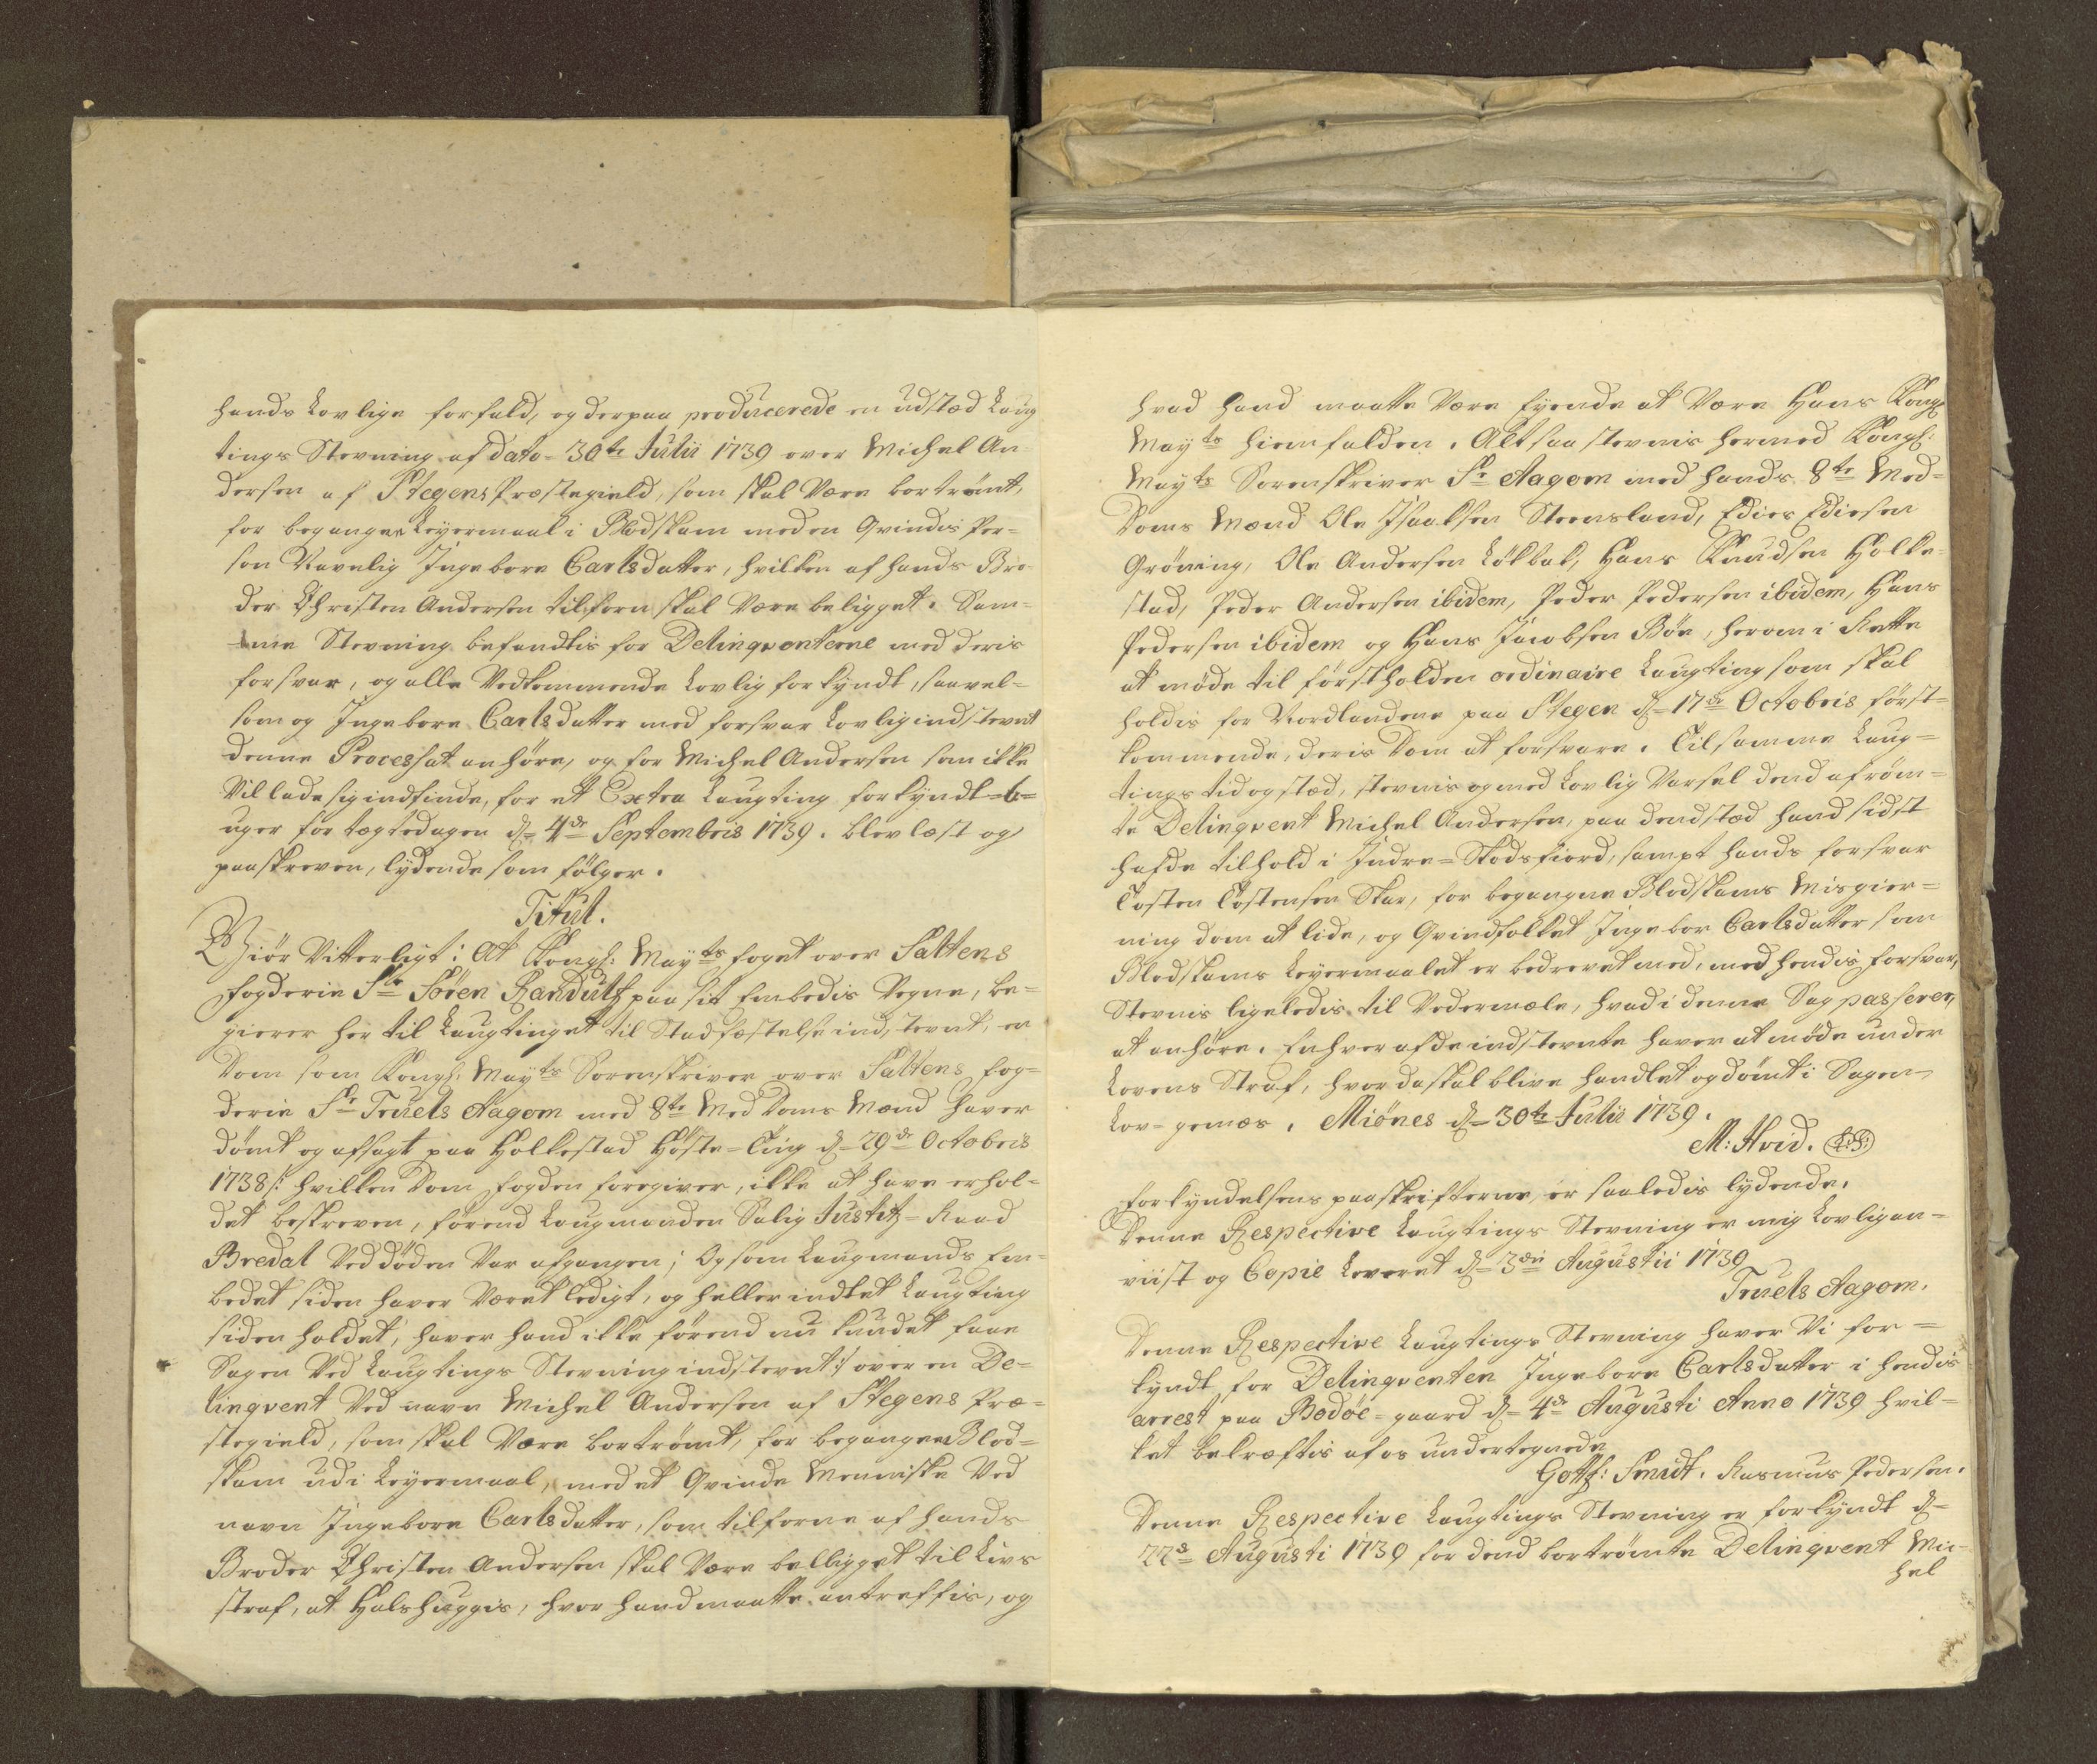 hands Lovlige forfald, og derpaa producerede en udstæd Laug
tings Stevning af dato 30te Julii 1739 over Michel An
dersen af Stegens Præstegield, som skal Være bortrømt,
for begangen Leyermaal i Blodskam med en Qvindis Per-
son Navnlig Ingebore Carlsdatter, hvilken af hands Bro-
der Christen Andersen tilforn skal Være beligget. Sam-
me Stevning befandtis for Delinqventerne med deris
forsvar, og alle Vedkommende Lovlig forkyndt, saavel-
som og Ingebore Carlsdatter med forsvar Lovlig indstevnt
denne Process at anhøre, og for Michel Andersen som ikke
Vil lade sig indfinde, for et Extra Laugting forkyndt =6=
uger for tægtedagen d= 4de Septembris 1739. blev læst og
paaskreven, lydende som følger.
Titul.
Giør Vitterligt: At Kongl: Mayts foget over Saltens
fogderie Sr Søren Randulf paa sit Embedis Vegne, be-
gierer her til Laugtinget til Stadfæstelse indstevnt, en
Dom som Kongl: Mayts Sorenskriver over Saltens fog-
derie Sr Truels Aagom med 8te Med Doms Mænd haver
dømt og afsagt paa Holkestad Høste-Ting d= 29de Octobris
1738/: hvilken Dom fogden foregiver, ikke at have erhol-
det beskreven, førend Laugmanden Salig Justitz-Raad
Bredal Ved døden Var afgangen; Og som Laugmands Em-
bedet siden haver Været ledigt, og heller indtet Laugting
siden holdet, haver hand ikke førend nu kundet faae
Sagen Ved Laugtings Stevning indstevnt:/ over en De-
linqvent Ved navn Michel Andersen af Stegens Præ-
stegield, som skal Være bortrømt, for begangen Blod-
skam udi Leyermaal, med et Qvinde Menniske Ved
navn Ingebore Carlsdatter, som tilforne af hands
Broder Christen Andersen skal Være belligget til Livs
straf, at Halshuggis, hvor hand maatte antreffis, og
hvad hand maatte Være Eyende at Være Hans Kongl
Mayts hiemfalden. Alt saa stevnis hermed Kongl:
Mayts Sorenskriver Sr Aagom med hands 8te Med-
Doms Mænd Ole Isaaksen Steensland, Edies Ediesen
Grøning, Ole Andersen Løkbak, Hans Knudsen Holke-
stad, Peder Andersen ibidem, Peder Pedersen ibidem, Hans
Pedersen ibidem og Hans Jacobsen Bøe, herom i Rette
at møde til førstholden ordinaire Laugting som skal
holdis for Nordlandene paa Stegen d= 17de Octobris først-
kommende, deris Dom at forsvare. Til samme Laug-
tings tid og stæd, stevnis og med Lovlig Varsel dend afrøm-
te Delinqvent Michel Andersen, paa dend stæd hand sidst
hafde tilhold i Indre-Skodsfiord, sampt hands forsvar
Tosten Tostensen Skar, for begangne Blodskams Misgier-
ning dom at lide, og Qvindfolket Ingebor Carlsdatter som
Blodskams Leyermaalet er bedrevet med, med hendis forsvar,
Stevnis ligeledis til Vedermæle, hvad i denne Sag passerer,
at anhøre. Enhver af de indstevnte haver at møde under
Lovens Straf, hvor da skal blive handlet og dømt i Sagen
Lov-gemæs. Miønes d= 30te Julii 1739.
M: Hvid. (L:S:)
Forkyndelsens paaskrifterne er saaledis lydende.
Denne Respective Laugtings Stevning er mig Lovlig an-
viist og Copie Leveret d= 3die Augustii 1739
Truels Aagom.
Denne Respective Laugtings Stevning haver Vi for-
kyndt for Delinqventen Ingebore Carlsdatter i hendis
arrest paa Bodøe-gaard d= 4de Augusti Anno 1739 hvil-
ket bekræftis af os undertegnede
Gottf: Smidt. Rasmus Pedersen.
Denne Respective Laugtings Stevning er forkyndt d=
22de Augusti 1739 for dend bortrømte Delinqvent Mic-
hel